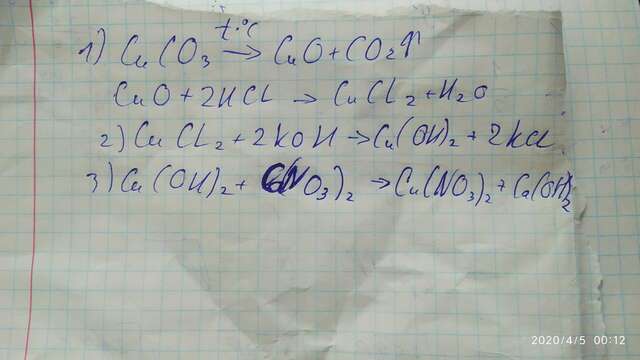 t.°C
1) CuCO3 → CuO + CO2↑
CuO + 2HCl → CuCl2 + H2O
2) CuCl2 + 2KOH → Cu(OH)2 + 2KCl
3) Cu(OH)2 + (NO3)2 → Cu(NO3)2 + Ca(OH)2
2020/4/5 00:12